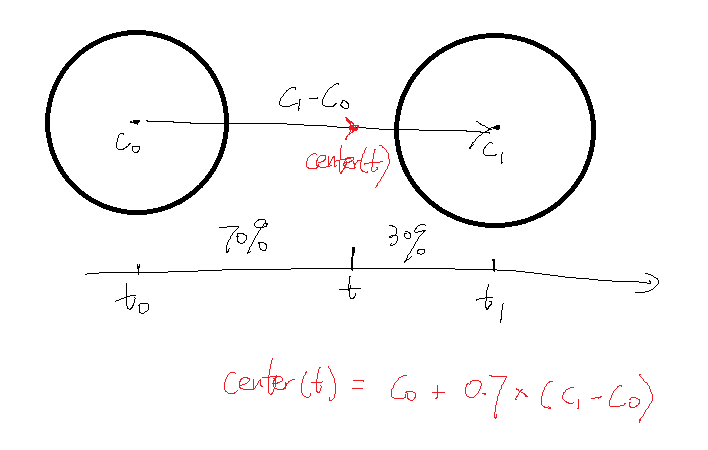 C₁-C₀
C₀
C₁
center(t)
70%
30%
t₀
t
t₁
center(t) = C₀ + 0.7 × (C₁ - C₀)